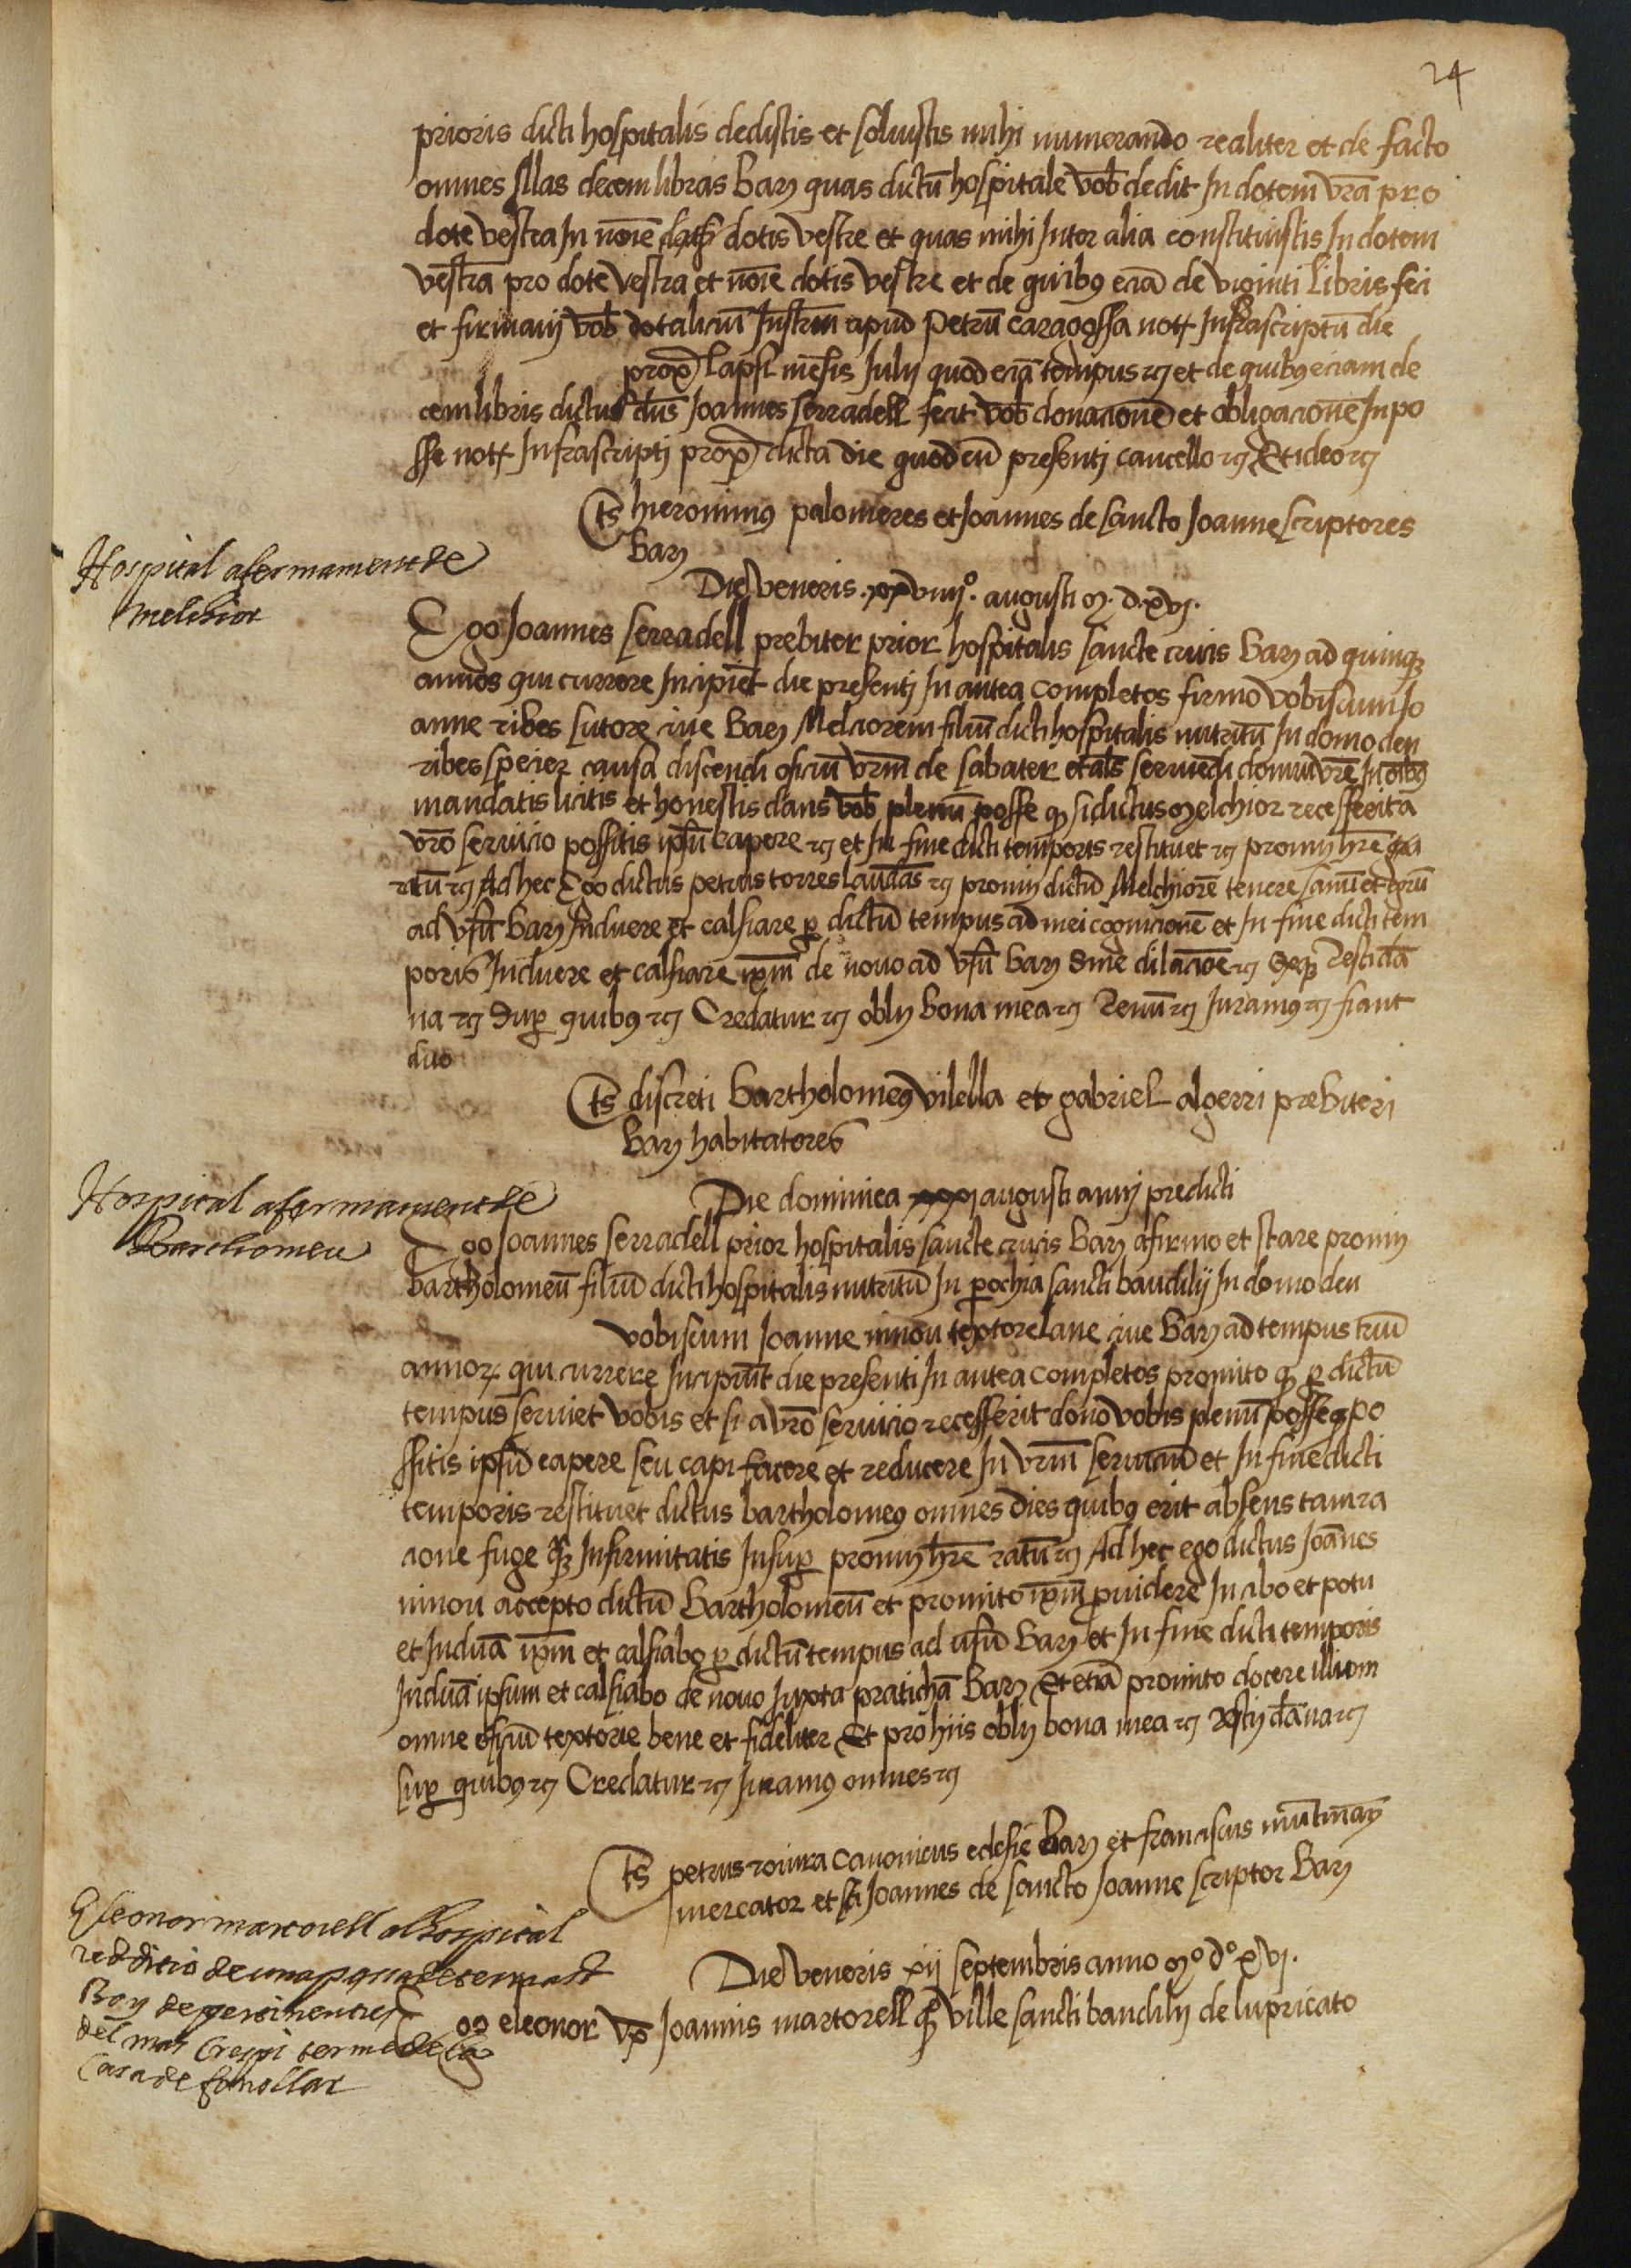 24
prioris dicti hospitalis dedistis et soluistis mihi numerando realiter et de facto
omnes Illas decem libras bar̃ quas dictũ hospitale vob̃ dedit In dotem vr̃a pro
dote vestra In nõie dotis vestre et quas mihi Inter alia constituistis In dotem
vestrã pro dote vestra et nõie dotis vestre et de quibꝰ eciã de viginti libris feci
et firmauj vob̃ dotaliciũ Instr̃m apud Petrũ Caragossa nott Infrascriptũ die
proxᵉ lapsi mẽsis Julij quod eciã tempus rꝫ et de quibꝰ eciam de
cem libris dictus dñs Joannes serradell fecit vob̃ donacionẽ et obligacionẽ In po
sse nott Infrascriptj proxᵉ dicta die quod cũ presentj cancello rꝫ Et ideo rꝫ
T̃s hieronimꝰ palomeres et Joannes de sancto Joanne scriptores
bar̃
Hospital afermament de
melchior
Die veneris .xxviiijº. augusti m. d. xvj.
Ego Joannes serradell prebiter prior hospitalis sancte crucis bar̃ ad quinqꝫ
annos qui currere Incipiẽt die presentj In antea completos firmo vobiscum Jo
anne ribes sutore ciue bar̃ Melciorem filiũ dicti hospitalis nutritũ In domo den
ribes specier causa discendi oficiũ vr̃m de sabater et als̃ seruiẽdi domui vr̃e In oĩbꝰ
mandatis licitis et honestis dans vob̃ plenũ posse qꝫ si dictus Melchior recesserit a
vr̃o seruicio possitis ip̃sũ capere rꝫ et In fine dicti temporis restituet rꝫ promij hr̃e
ratũ rꝫ Ad hec Ego dictus petrus torres laudãs rꝫ promij dictũ Melchiorẽ tenere sanũ et egrũ
ad vsũ bar̃ Induere et calsiare p̱ dictũ tempus ad mei cognicionẽ et In fine dicti tem
poris Induere et calsiare ip̃m de nouo ad vsũ bar̃ Sine dilacioẽ rꝫ
na rꝫ Sup̱ quibꝰ rꝫ Credatur rꝫ oblij bona mea rꝫ Renũ rꝫ Juramꝰ rꝫ fiant
duo
T̃s discreti Bartholomeꝰ vilella et gabriel algerri prebiteri
bar̃ habitatores
Hospital afermament de
Barthomeu
Die dominica xxxj augusti annj predicti
Ego Joannes serradell prior hospitalis sancte crucis bar̃ afirmo et stare promij
bartholomeũ filiũ dicti hospitalis nutritũ In p̱ochia sancti baudilij In domo den
vobiscum Joanne ninou textore lane ciue bar̃ ad tempus triũ
annoꝝ qui currere Incipiũt die presenti In antea completos promito qꝫ p̱ dictũ
tempus seruiet vobis et si a vr̃o seruicio recesserit dono vobis plenũ posse qꝫ po
ssitis ipsũ capere seu capi facere et reducere In vr̃m seruiciũ et In fine dicti
temporis restituet dictus bartholomeꝰ omnes dies quibꝰ erit absens tam ra
cione fuge qꝫ Infirmitatis Insup̱ promij hr̃e ratũ rꝫ Ad hec ego dictus Joãnes
ninou accepto dictũ Bartholomeũ et promito ip̃m p̱uidere In cibo et potu
et Induã ip̃m et calsiabo p̱ dictũ tempus ad usũ bar̃ et In fine dicti temporis
Induã ipsum et calsiabo de nouo Juxta pratichã bar̃ Et etiã promito docere illum
omne oficiũ textorie bene et fideliter Et pro hiis oblij bona mea rꝫ
sup̱ quibꝰ rꝫ Credatur rꝫ Juramꝰ omnes rꝫ
T̃s petrus rouira canonicus eclesie bar̃ et franciscus
mercator et Joannes de sancto Joanne scriptor bar̃
Eleonor martorell al hospital
reddicio de una
de pertinenties
del mas Crespi terme de la
Casa de fonollar
Die veneris xij septembris anno mº dº xvj.
Ego eleonor vx̃ Joannis martorell qº ville sancti baudilij de lupricato